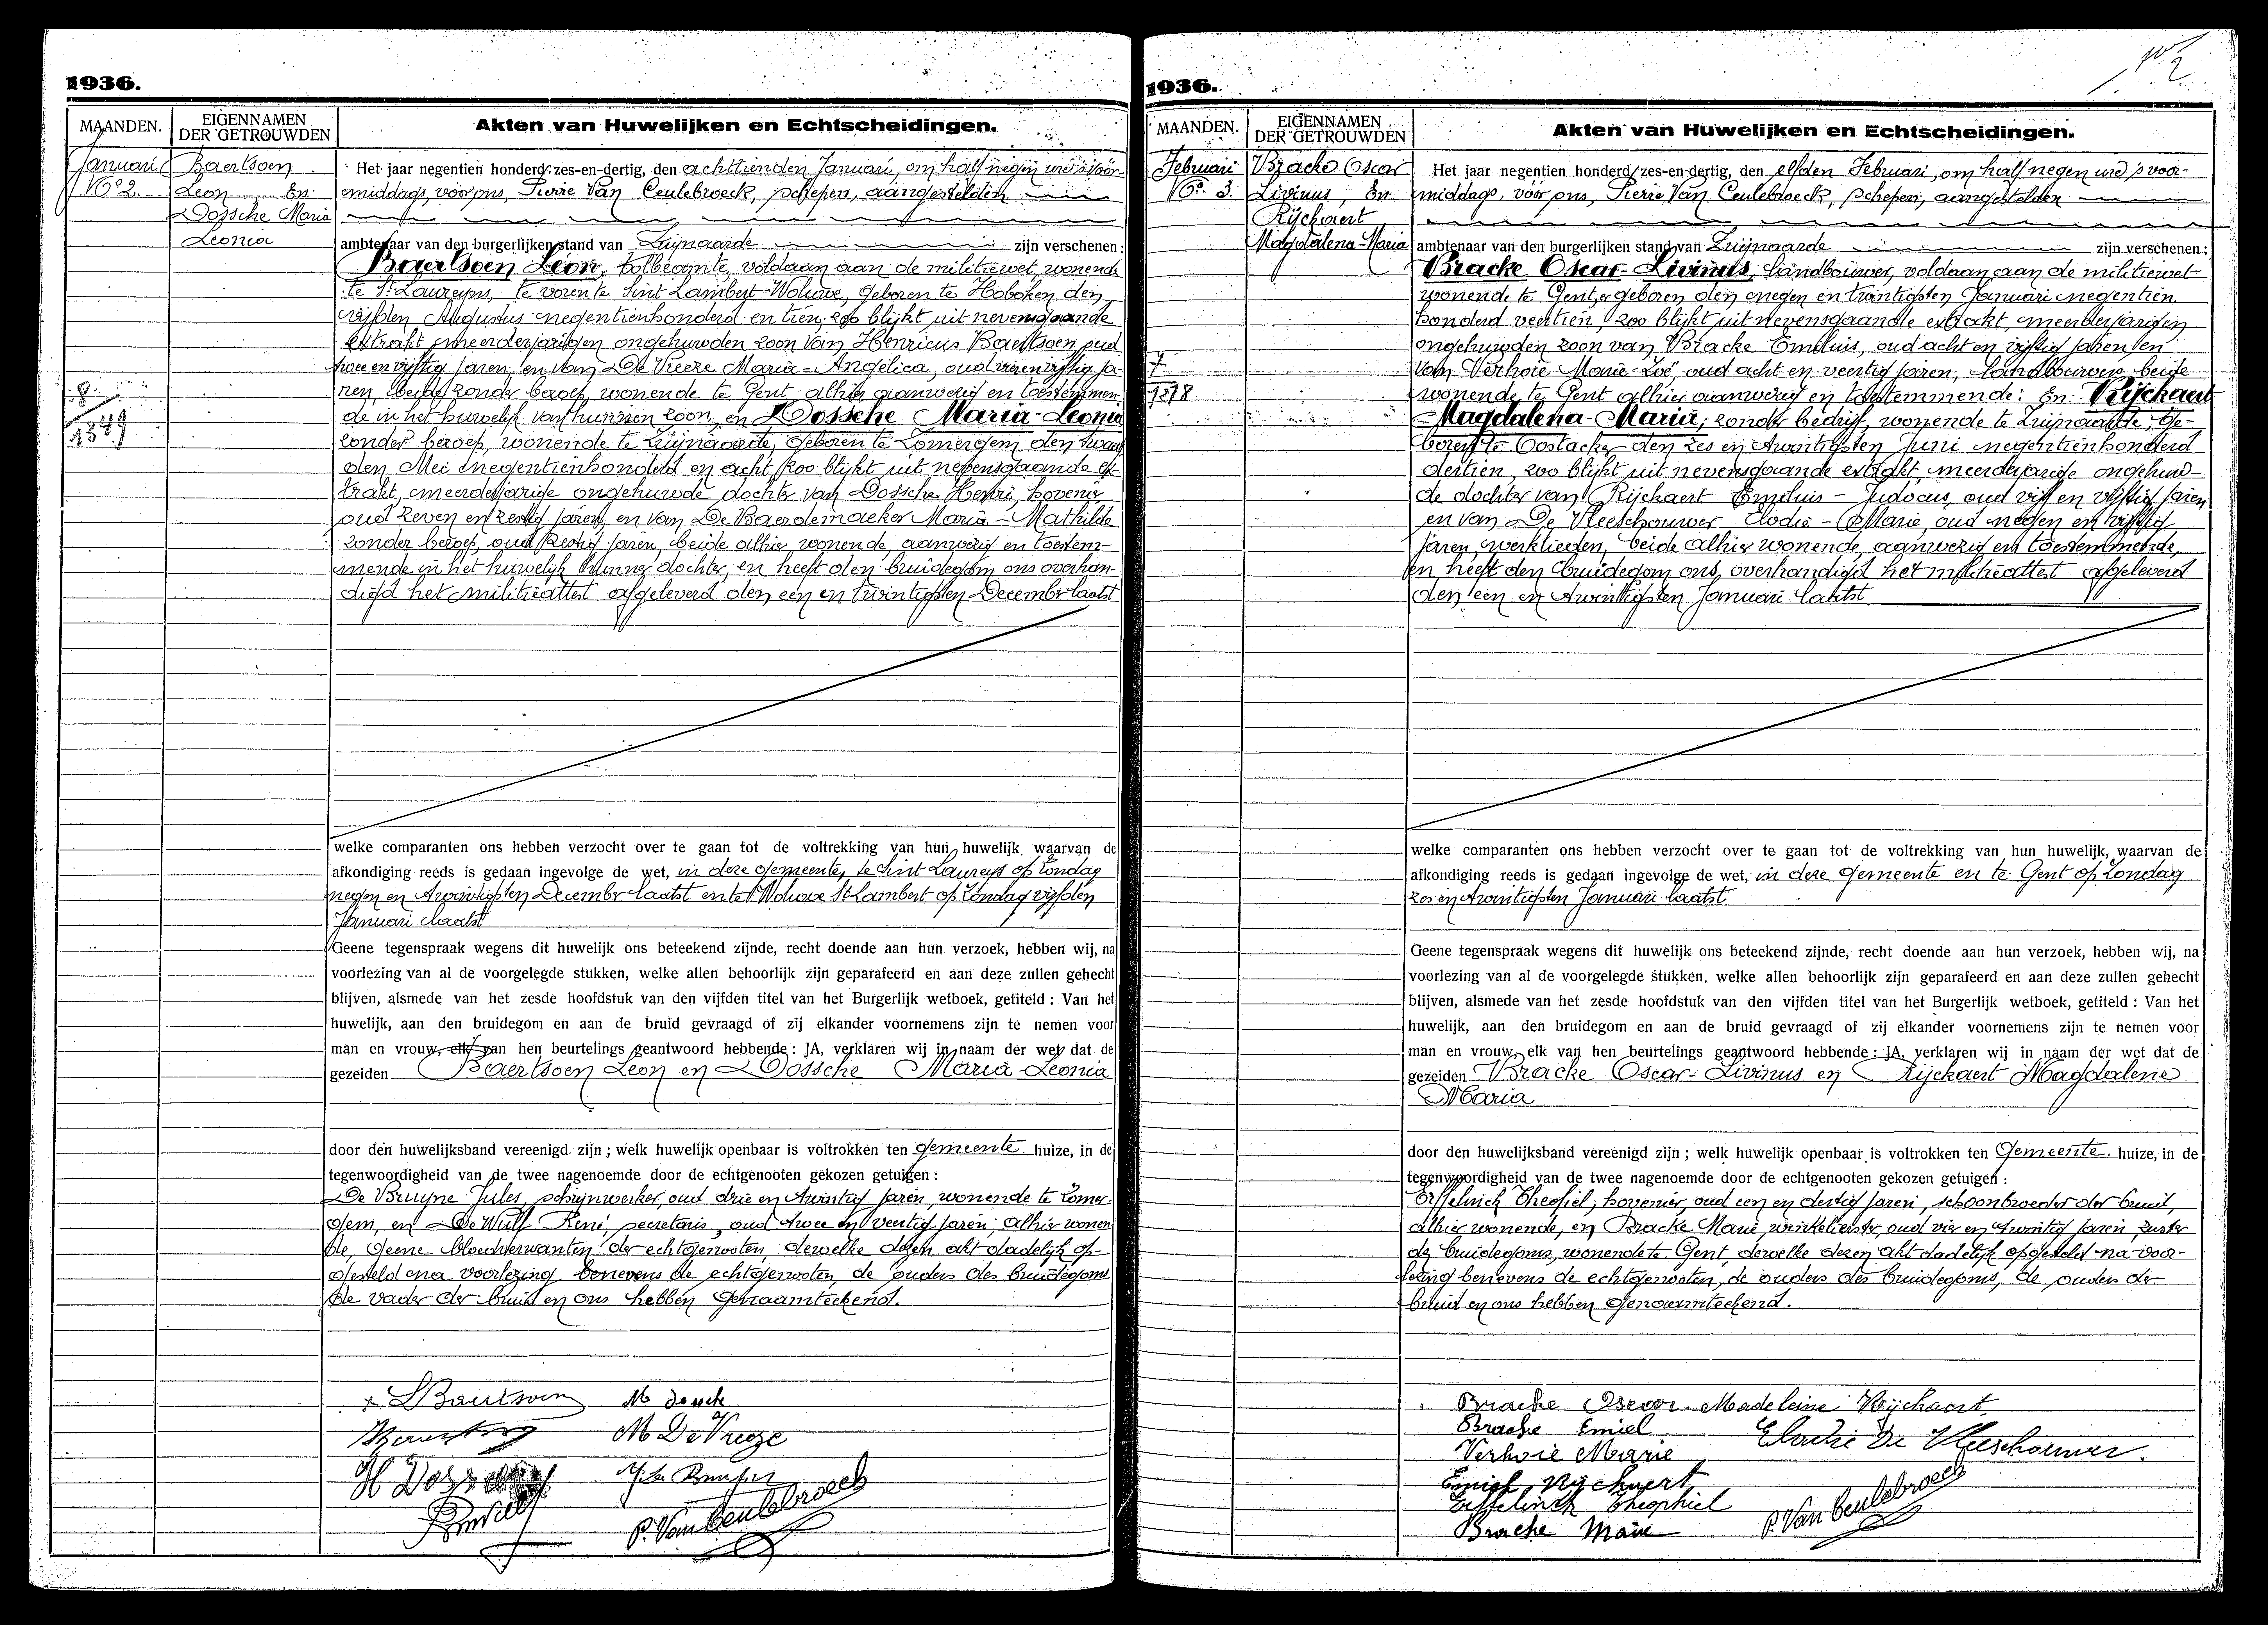 1936.
MAANDEN.
EIGENNAMEN
DER GETROUWDEN
Akten van Huwelijken en Echtscheidingen.
Januari
No 2.
Baertsoen
Leon En
Dossche Maria
Leonia
8
1349
Het jaar negentien honderd zes-en-dertig, den achttienden Januari, om half negen ure 's voor-
middags, vóór ons, Pierre Van Ceulebroeck, schepen, aangestelden
ambtenaar van den burgerlijken stand van Zwijnaarde zijn verschenen:
Baertsoen Leon, tolbeamte, voldaan aan de militiewet, wonende
te St Laureyns, te voren te Sint Lambert-Woluwe, geboren te Hoboken den
vijfden Augustus negentienhonderd en tien, zoo blijkt uit nevensgaande
extrakt, meerderjarigen ongehuwden zoon van Henricus Baertsoen oud
twee en vijftig jaren, en van De Vreeze Maria-Angelica, oud vier en vijftig ja-
ren, beide zonder beroep, wonende te Gent alhier aanwezig en toestemmen-
de in het huwelijk van hunnen zoon, en Dossche Maria-Leonia
zonder beroep, wonende te Zwijnaarde, geboren te Zomergem den twaalf
den Mei negentienhonderd en acht, zoo blijkt uit nevensgaande ex-
trakt, meerderjarige ongehuwde dochter van Dossche Henri, hovenier
oud zeven en zestig jaren, en van De Baerdemaeker Maria-Mathilde
zonder beroep, oud zestig jaren, beide alhier wonende, aanwezig en toestem-
mende in het huwelijk hunner dochter, en heeft den bruidegom ons overhan-
digd het militieattest afgeleverd den een en twintigsten December laatst
welke comparanten ons hebben verzocht over te gaan tot de voltrekking van hun huwelijk, waarvan de
afkondiging reeds is gedaan ingevolge de wet, in deze gemeente, te Sint Laureyns op Zondag
negen en twintigsten December laatst en te Woluwe St Lambert op Zondag vijfden
Januari laatst
Geene tegenspraak wegens dit huwelijk ons beteekend zijnde, recht doende aan hun verzoek, hebben wij, na
voorlezing van al de voorgelegde stukken, welke allen behoorlijk zijn geparafeerd en aan deze zullen gehecht
blijven, alsmede van het zesde hoofdstuk van den vijfden titel van het Burgerlijk wetboek, getiteld : Van het
huwelijk, aan den bruidegom en aan de bruid gevraagd of zij elkander voornemens zijn te nemen voor
man en vrouw, elk van hen beurtelings geantwoord hebbende : JA, verklaren wij in naam der wet dat de
gezeiden Baertsoen Leon en Dossche Maria-Leonia
door den huwelijksband vereenigd zijn ; welk huwelijk openbaar is voltrokken ten gemeente huize, in de
tegenwoordigheid van de twee nagenoemde door de echtgenooten gekozen getuigen :
De Bruyne Jules, schrijnwerker, oud drie en twintig jaren, wonende te Zomer-
gem, en De Wulf René, secretaris, oud twee en veertig jaren, alhier wonen
de, geene bloedverwanten der echtgenooten, dewelke dezen akt dadelijk op-
gesteld na voorlezing benevens de echtgenooten, de ouders des bruidegoms
de vader der bruid en ons hebben genaamteekend.
L Baertsoen M Dossche
M De Vreeze
H Dossche
P. Van Ceulebroeck
1936.
MAANDEN.
EIGENNAMEN
DER GETROUWDEN
Akten van Huwelijken en Echtscheidingen.
Februari
No. 3.
Bracke Oscar
Livinus, En
Rijckaert
Magdalena-Maria
7
1378
Het jaar negentien honderd zes-en-dertig, den elfden Februari, om half negen ure 's voor-
middags, vóór ons, Pierre Van Ceulebroeck, schepen, aangestelden
ambtenaar van den burgerlijken stand van Zwijnaarde zijn verschenen:
Bracke Oscar-Livinus, landbouwer, voldaan aan de militiewet
wonende te Gent, er geboren den negen en twintigsten Januari negentien
honderd veertien, zoo blijkt uit nevensgaande extrakt, meerderjarigen
ongehuwden zoon van Bracke Emilius, oud acht en vijftig jaren en
van Verhoie Marie-Zoë, oud acht en veertig jaren, landbouwers beide
wonende te Gent alhier aanwezig en toestemmende: En Rijckaert
Magdalena-Maria, zonder bedrijf, wonende te Zwijnaarde, ge-
boren te Oostacker den zes en twintigsten Juni negentienhonderd
dertien, zoo blijkt uit nevensgaande extrakt, meerderjarige ongehuw-
de dochter van Rijckaert Emilius-Judocus, oud vijf en vijftig jaren
en van De Vleeschouwer Elodie-Marie, oud negen en vijftig
jaren, werklieden, beide alhier wonende, aanwezig en toestemmende,
en heeft den bruidegom ons overhandigd het militieattest afgeleverd
den een en twintigsten Januari laatst
welke comparanten ons hebben verzocht over te gaan tot de voltrekking van hun huwelijk, waarvan de
afkondiging reeds is gedaan ingevolge de wet, in deze gemeente en te Gent op Zondag
zes en twintigsten Januari laatst
Geene tegenspraak wegens dit huwelijk ons beteekend zijnde, recht doende aan hun verzoek, hebben wij, na
voorlezing van al de voorgelegde stukken, welke allen behoorlijk zijn geparafeerd en aan deze zullen gehecht
blijven, alsmede van het zesde hoofdstuk van den vijfden titel van het Burgerlijk wetboek, getiteld : Van het
huwelijk, aan den bruidegom en aan de bruid gevraagd of zij elkander voornemens zijn te nemen voor
man en vrouw, elk van hen beurtelings geantwoord hebbende : JA, verklaren wij in naam der wet dat de
gezeiden Bracke Oscar-Livinus en Rijckaert Magdalene
Maria
door den huwelijksband vereenigd zijn ; welk huwelijk openbaar is voltrokken ten Gemeente huize, in de
tegenwoordigheid van de twee nagenoemde door de echtgenooten gekozen getuigen :
Effelinck Theofiel, hovenier, oud een en dertig jaren, schoonbroeder der bruid,
alhier wonende, en Bracke Marie, winkelierster, oud vier en twintig jaren, zuster
des bruidegoms, wonende te Gent, dewelke dezen akt dadelijk opgesteld na voor-
lezing benevens de echtgenooten, de ouders des bruidegoms, de ouders der
bruid en ons hebben genaamteekend.
Bracke Oscar. Madeleine Rijckaert
Bracke Emiel Elodie De Vleeschouwer.
Verhoie Marie
Emiel Rijckaert
Effelinck Theophiel
Bracke Marie P. Van Ceulebroeck